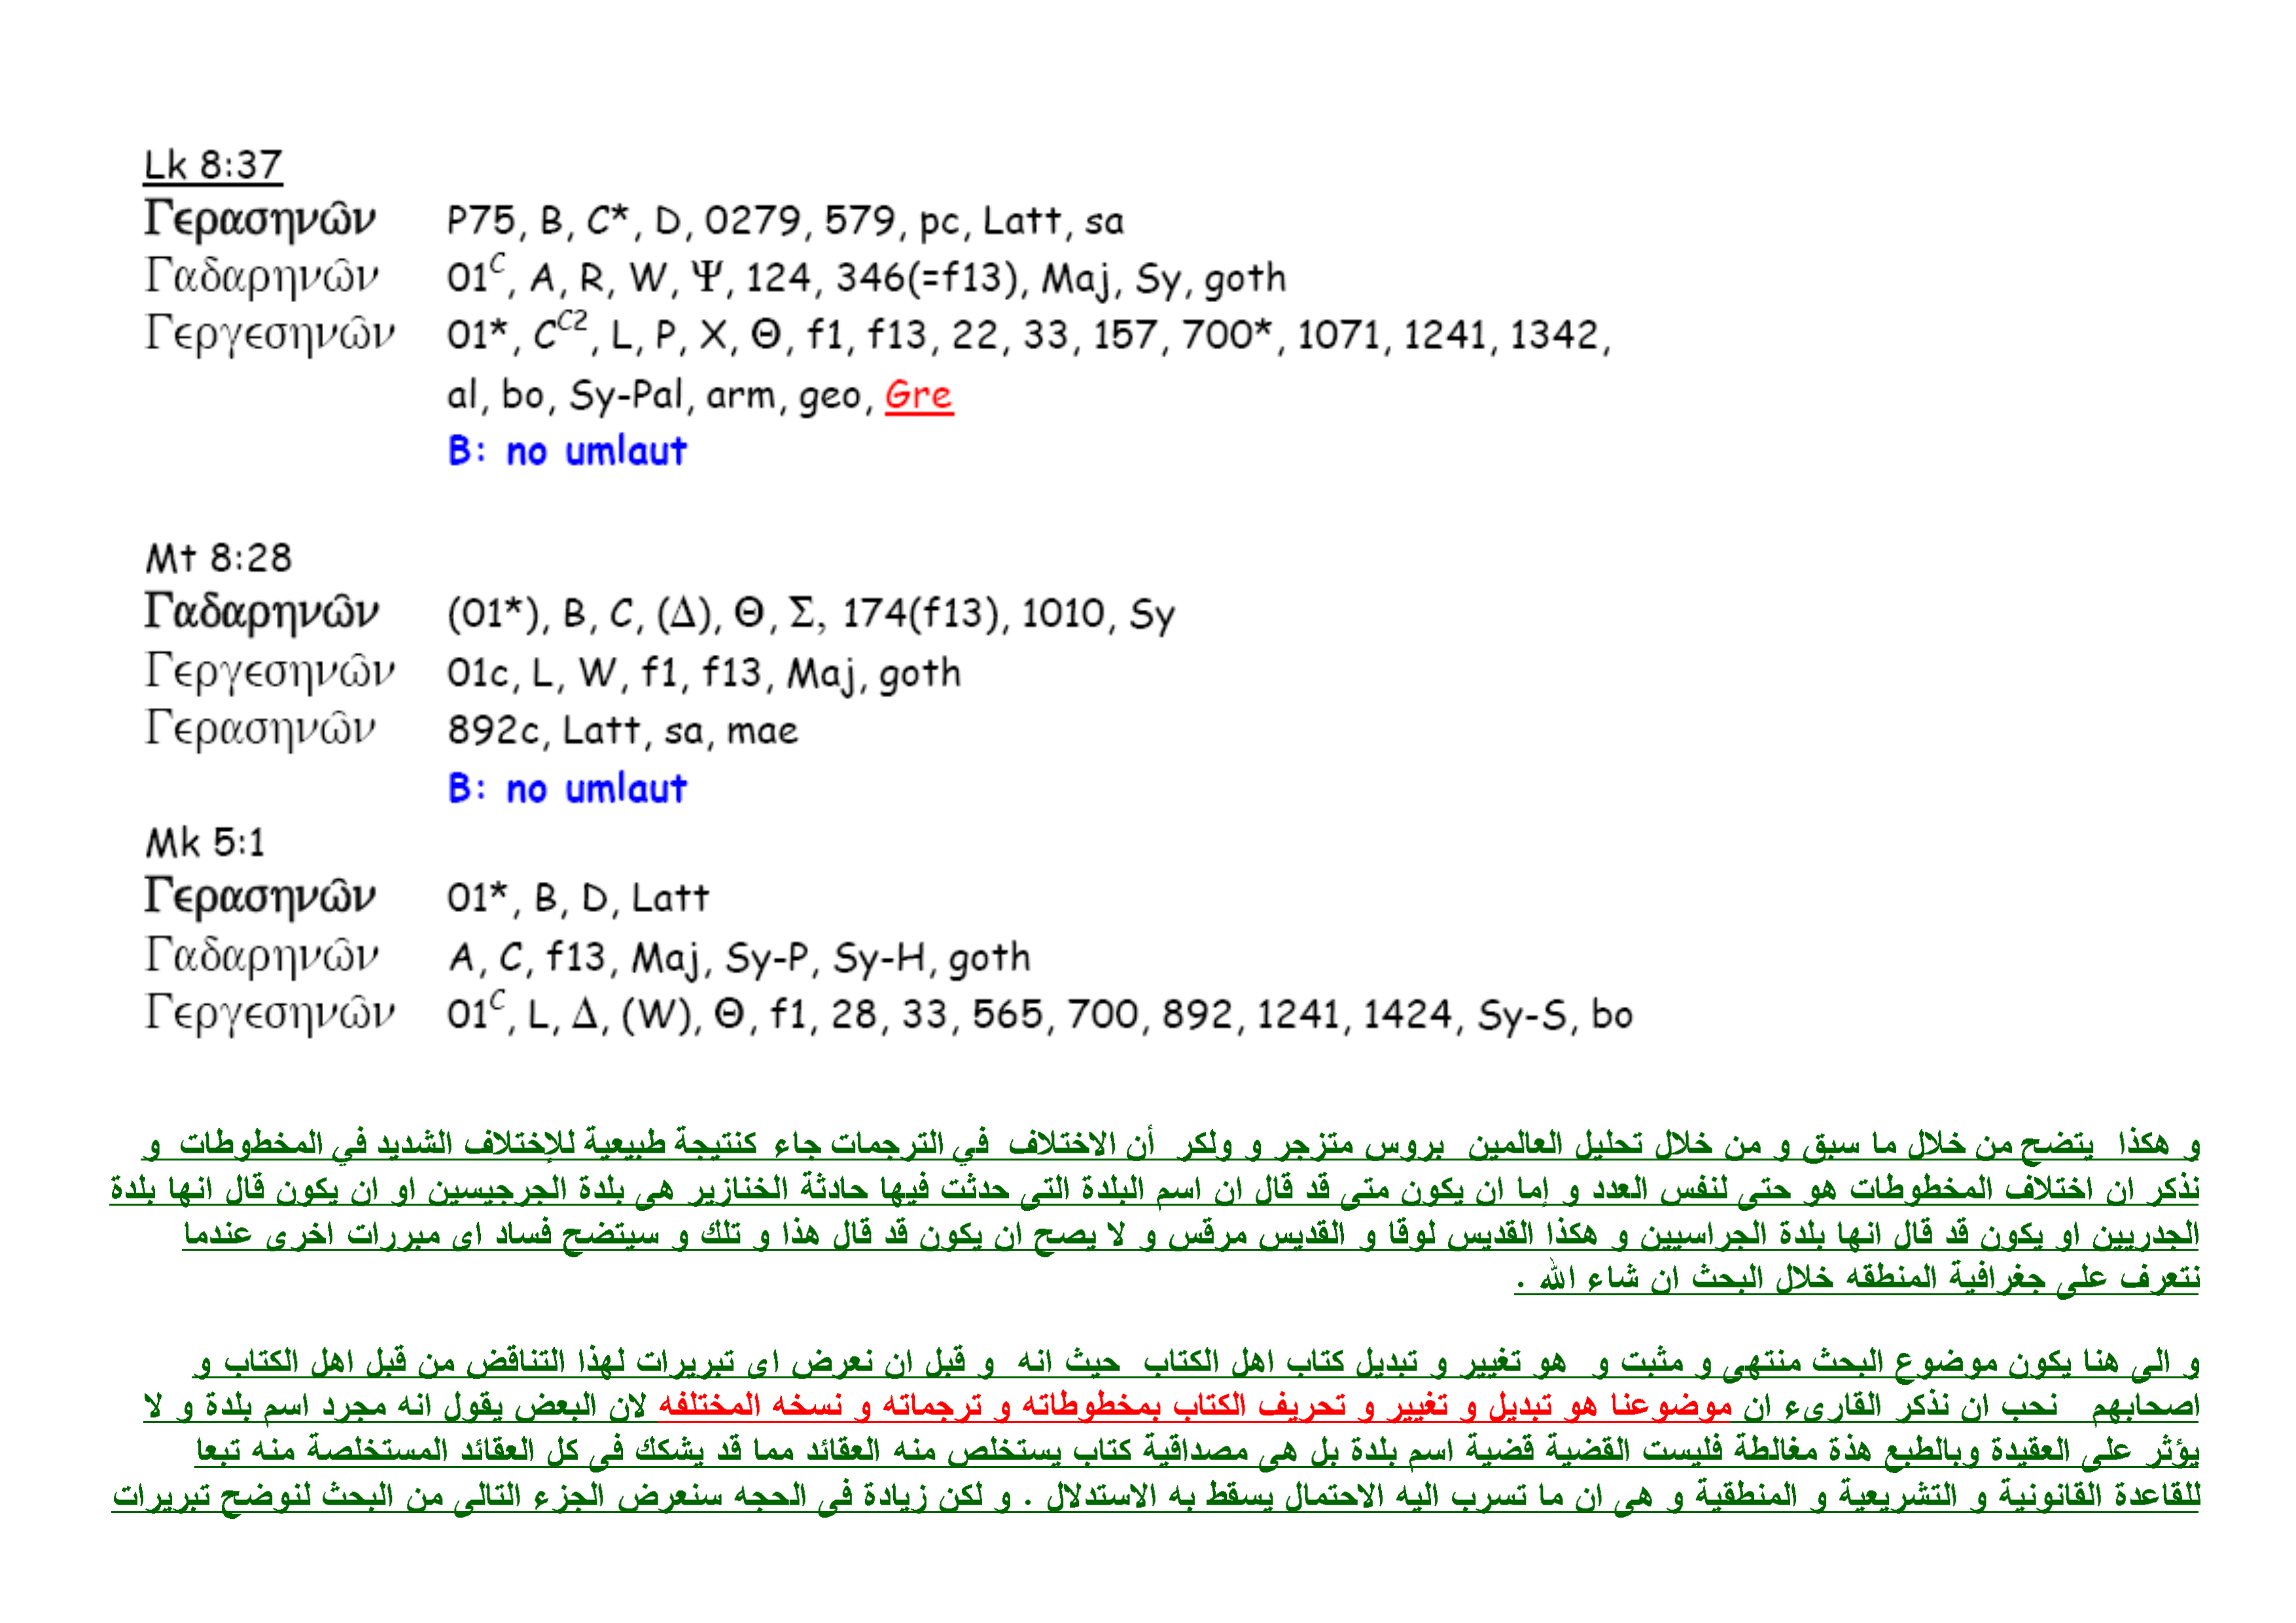 Lk 8:37
Γερασηνῶν P75, B, C*, D, 0279, 579, pc, Latt, sa
Γαδαρηνῶν 01C, A, R, W, Ψ, 124, 346(=f13), Maj, Sy, goth
Γεργεσηνῶν 01*, CC2, L, P, X, Θ, f1, f13, 22, 33, 157, 700*, 1071, 1241, 1342,
al, bo, Sy-Pal, arm, geo, Gre
B: no umlaut
Mt 8:28
Γαδαρηνῶν (01*), B, C, (Δ), Θ, Σ, 174(f13), 1010, Sy
Γεργεσηνῶν 01c, L, W, f1, f13, Maj, goth
Γερασηνῶν 892c, Latt, sa, mae
B: no umlaut
Mk 5:1
Γερασηνῶν 01*, B, D, Latt
Γαδαρηνῶν A, C, f13, Maj, Sy-P, Sy-H, goth
Γεργεσηνῶν 01C, L, Δ, (W), Θ, f1, 28, 33, 565, 700, 892, 1241, 1424, Sy-S, bo
و هكذا يتضح من خلال ما سبق و من خلال تحليل العالمين بروس متزجر و ولكر أن الاختلاف في الترجمات جاء كنتيجة طبيعية للإختلاف الشديد في المخطوطات و
نذكر ان اختلاف المخطوطات هو حتى لنفس العدد و إما ان يكون متى قد قال ان اسم البلدة التى حدثت فيها حادثة الخنازير هى بلدة الجرجيسين او ان يكون قال انها بلدة
الجدريين او يكون قد قال انها بلدة الجراسيين و هكذا القديس لوقا و القديس مرقس و لا يصح ان يكون قد قال هذا و تلك و سيتضح فساد اى مبررات اخرى عندما
نتعرف على جغرافية المنطقه خلال البحث ان شاء الله .
و الى هنا يكون موضوع البحث منتهى و مثبت و هو تغيير و تبديل كتاب اهل الكتاب حيث انه و قبل ان نعرض اى تبريرات لهذا التناقض من قبل اهل الكتاب و
اصحابهم نحب ان نذكر القارىء ان موضوعنا هو تبديل و تغيير و تحريف الكتاب بمخطوطاته و ترجماته و نسخه المختلفه لان البعض يقول انه مجرد اسم بلدة و لا
يؤثر على العقيدة وبالطبع هذة مغالطة فليست القضية قضية اسم بلدة بل هى مصداقية كتاب يستخلص منه العقائد مما قد يشكك فى كل العقائد المستخلصة منه تبعا
للقاعدة القانونية و التشريعية و المنطقية و هى ان ما تسرب اليه الاحتمال يسقط به الاستدلال . و لكن زيادة فى الحجه سنعرض الجزء التالى من البحث لنوضح تبريرات